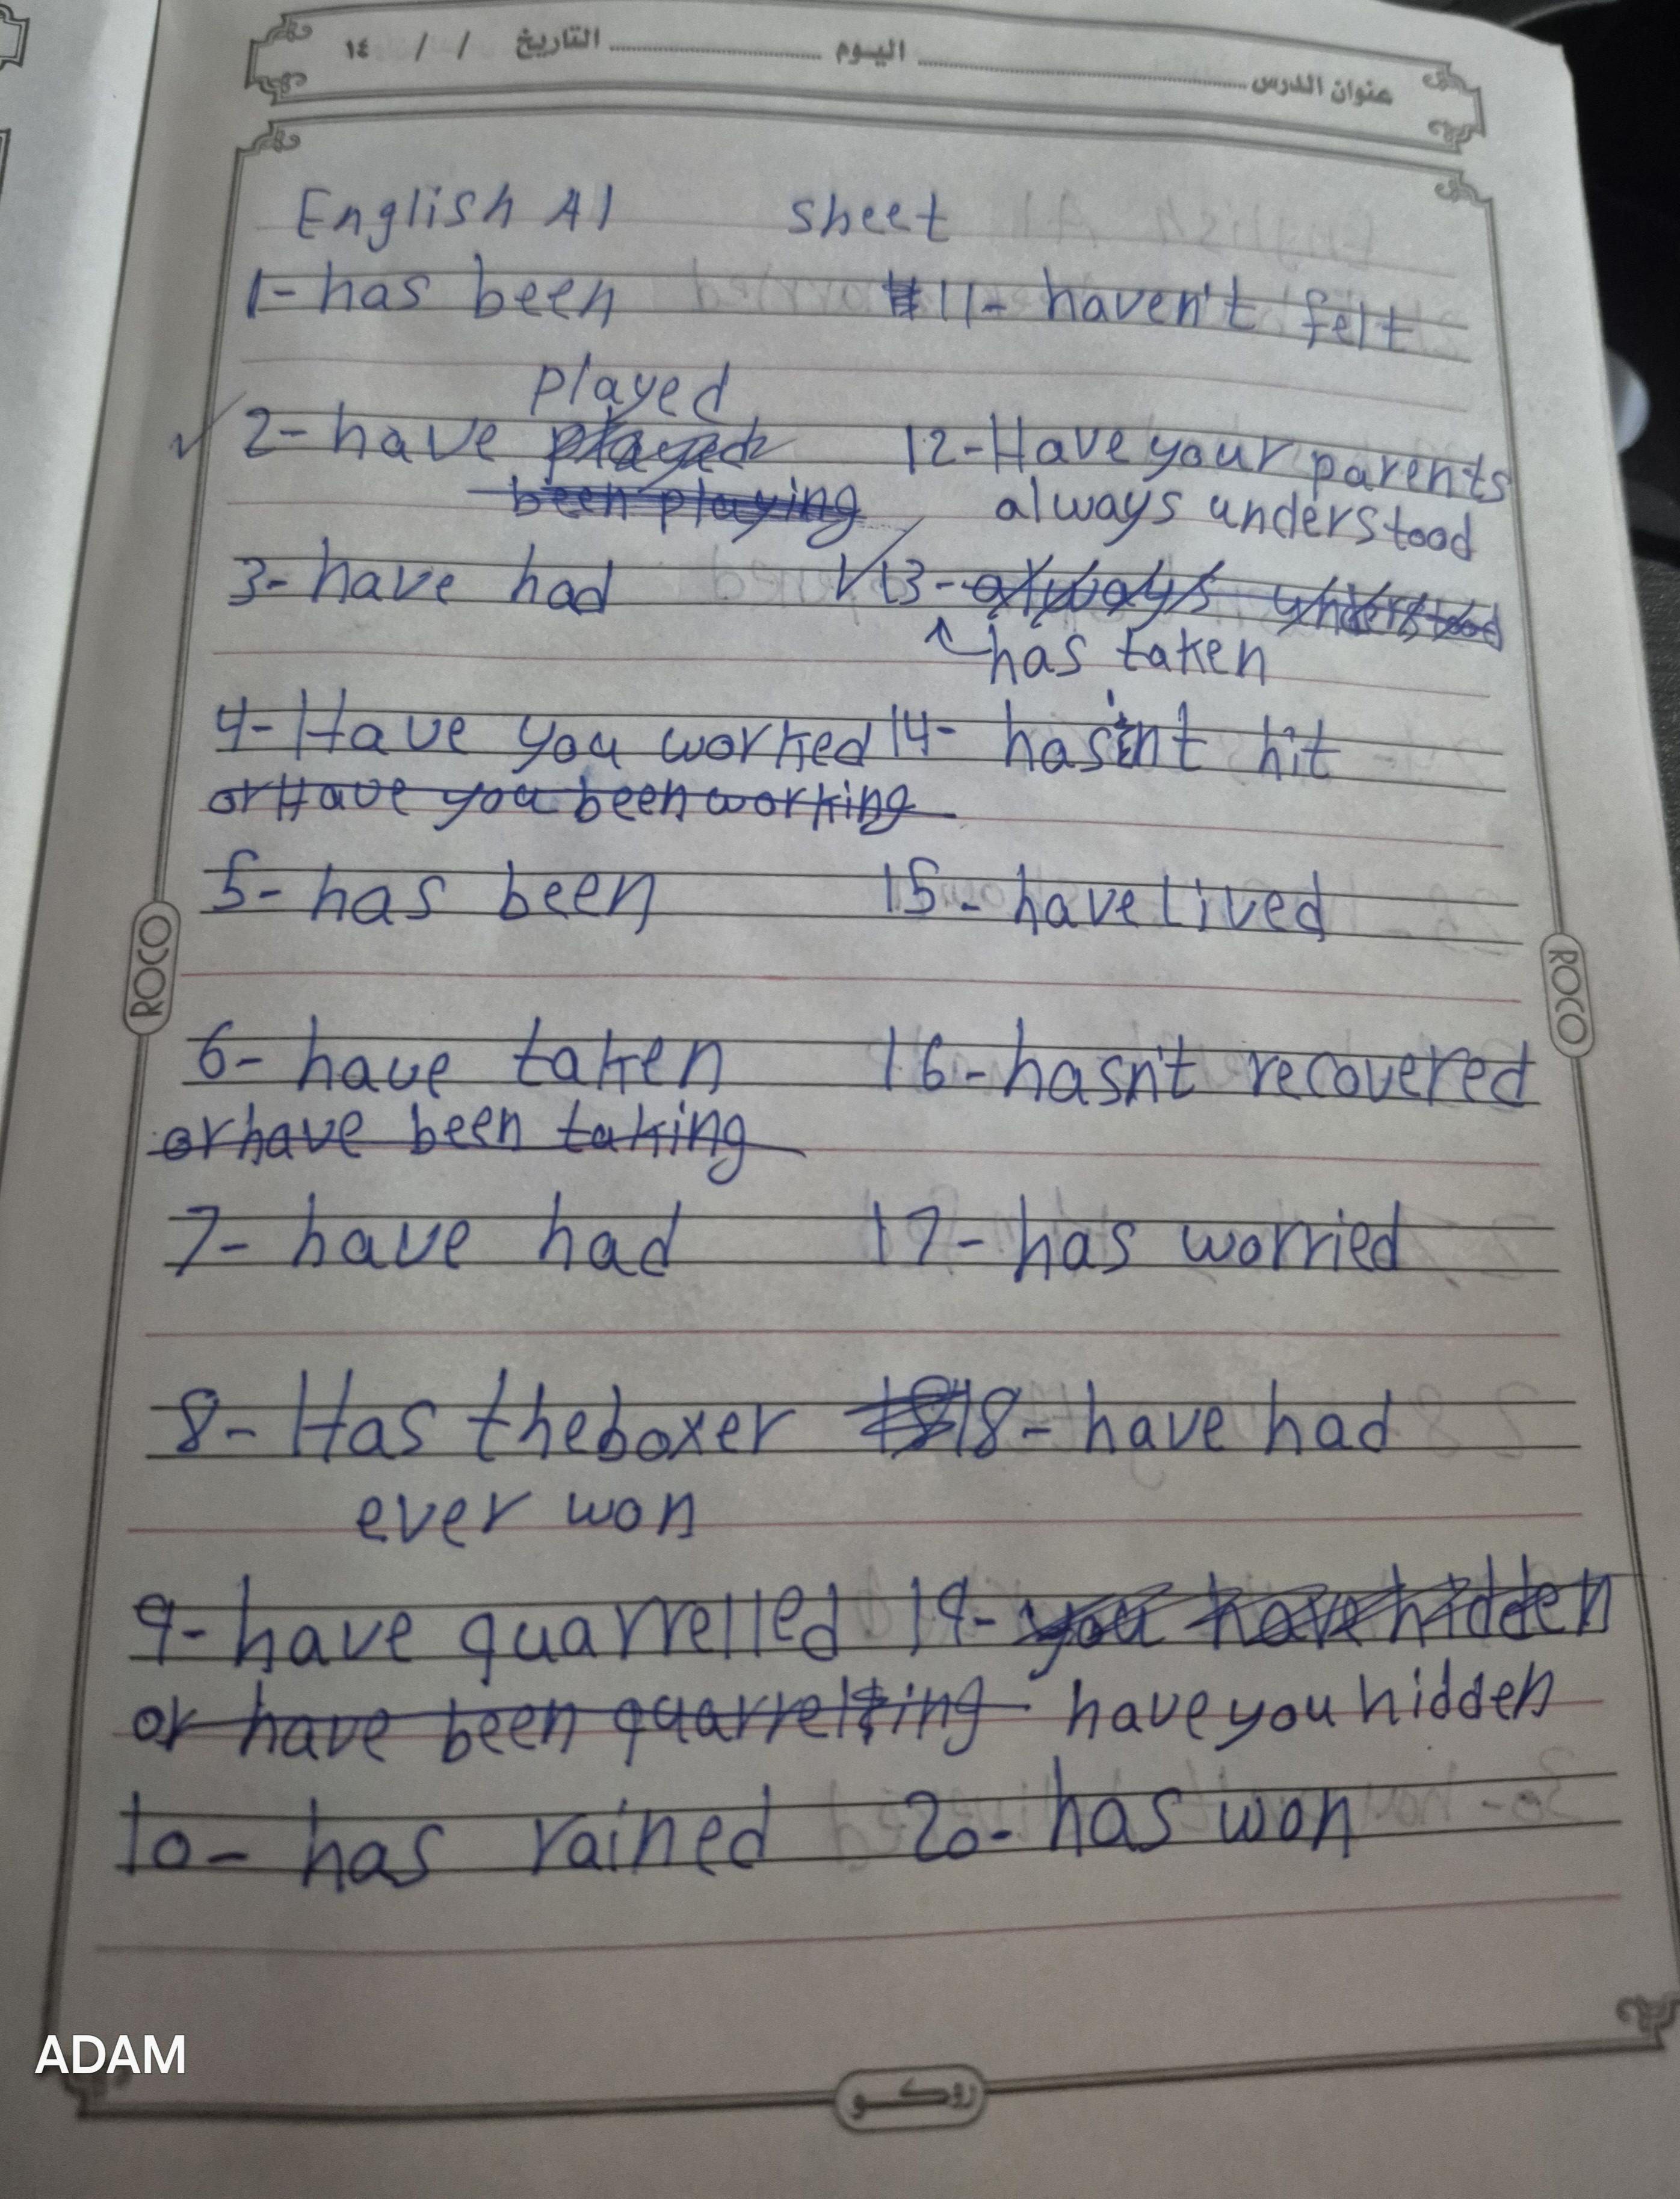 عنوان الدرس اليوم التاريخ / / ١٤
English A1 sheet
1- has been
played
2- have played
been playing
3- have had
4- Have you worked
or Have you been working
5- has been
6- have taken
or have been taking
7- have had
8- Has the boxer
ever won
9- have quarrelled
or have been quarrelling
10- has rained
11- haven't felt
12- Have your parents
always understood
13- always understood
has taken
14- hasn't hit
15- have lived
16- hasn't recovered
17- has worried
18- have had
19- you have hidden
have you hidden
20- has won
ROCO
ROCO
ADAM
روكو